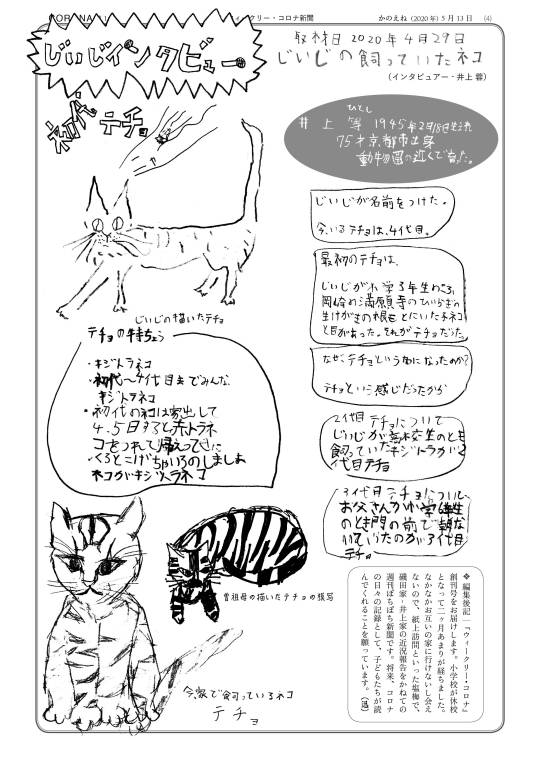 ィークリー・コロナ新聞
かのえね (2020年) 5月13日 (4)
じいじインタビュー
取材日2020年4月29日
じいじの飼っていたネコ
(インタビュアー・井上 蓉)
初代 テチョ
ひとし
井上 等 1945年2月18日生まれ
75才京都市出身
動物園の近くで育った。
じいじの描いたテチョ
じいじが名前をつけた。
今、いるテチョは、4代目。
最初のテチョは、
じいじが小学3年生のころ、
岡崎の満願寺のひいらぎの
生けがきの根もとにいた子ネコ
と目があった。それがテチョだった
なぜ、テチョという名になったのか?
テチョという感じだったから
テチョの特ちょう
・キジトラネコ
・初代〜4代目までみんな
キジトラネコ
・初代のネコは家出して
4.5日すると赤トラネ
コをつれて帰えってきた
2代目 テチョについて
じいじが高校生のとき
飼っていたキジトラが2
代目テチョ
3代目テチョについて、
お父さんが小学4年生
のとき門の前で朝な
いていたのが3代目
テチョ
曾祖母の描いたテチョの模写
今、家で飼っているネコ
テチョ
❖編集後記―『ウィークリー・コロナ』
創刊号をお届けします。小学校が休校
となって二ヶ月あまりが経ちました。
なかなかお互いの家に行けないし会え
ないので、紙上訪問といった塩梅で、
磯田家・井上家の近況報告をかねての
週刊ぼちぼち新聞です。将来、コロナ
の日々の記録として、子どもたちが読
んでくれることを願っています。